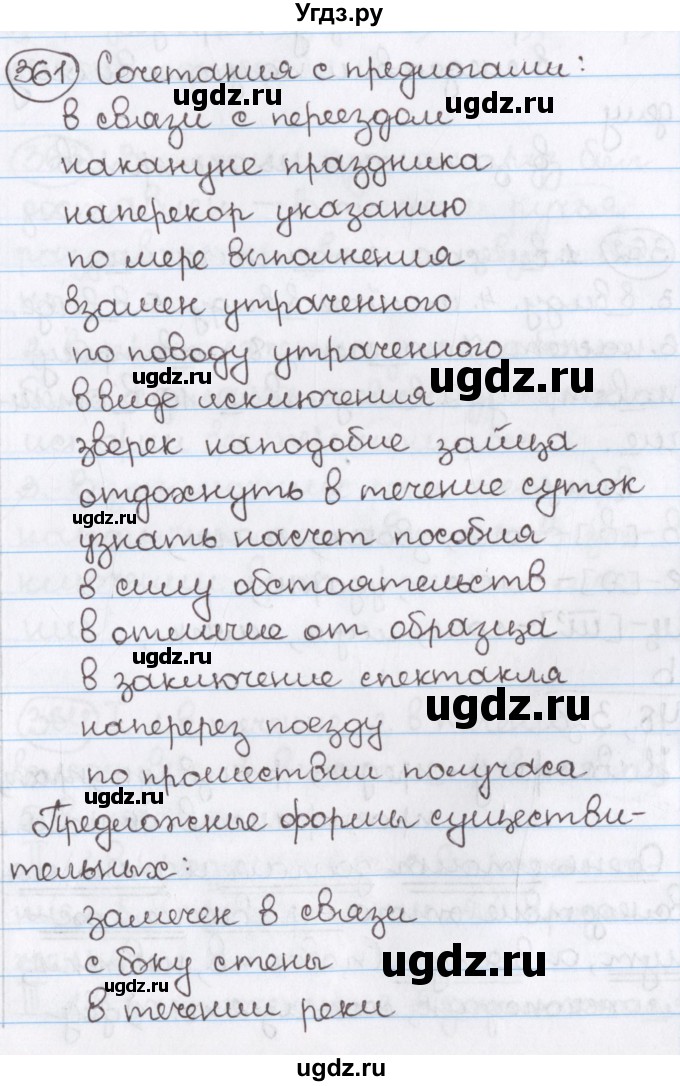 Угдз.ру
361 Сочетания с предлогами:
в связи с переездом
накануне праздника
наперекор указанию
по мере выполнения
взамен утраченного
по поводу утраченного
ввиде исключения
зверек наподобие зайца
отдохнуть в течение суток
узнать насчет пособия
в силу обстоятельств
в отличие от образца
в заключение спектакля
наперерез поезду
по прошествии получаса
Предложные формы существи-
тельных:
замечен в связи
с боку стены
в течении реки
ugdz.ru
ugdz.ru
ugdz.ru
ugdz.ru
ugdz.ru
ugdz.ru
ugdz.ru
ugdz.ru
ugdz.ru
ugdz.ru
ugdz.ru